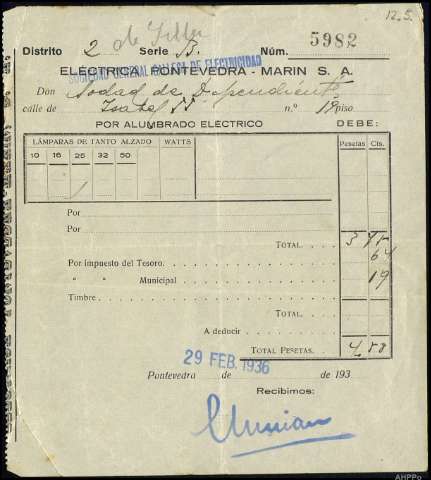 12.5.
de Filler
Distrito 2 Serie B. Núm. 5982
SOCIEDAD GENERAL GALLEGA DE ELECTRICIDAD
ELÉCTRICA PONTEVEDRA - MARIN S. A.
Don Sodad de Dependientes
calle de Isabel II n.º 19 piso
POR ALUMBRADO ELÉCTRICO DEBE:
LÁMPARAS DE TANTO ALZADO WATTS Pesetas Cts.
10 16 25 32 50
Por
Por
TOTAL. 3 75
Por Impuesto del Tesoro. 64
" " Municipal 19
Timbre
TOTAL.
A deducir
TOTAL PESETAS. 4,58
29 FEB. 1936
Pontevedra de de 193
Recibimos:
AHPPo